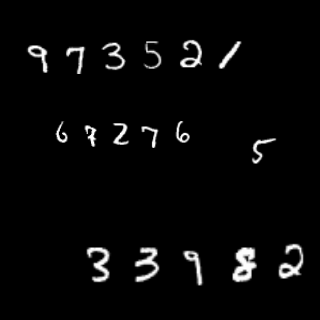 973521
67276
5
33982